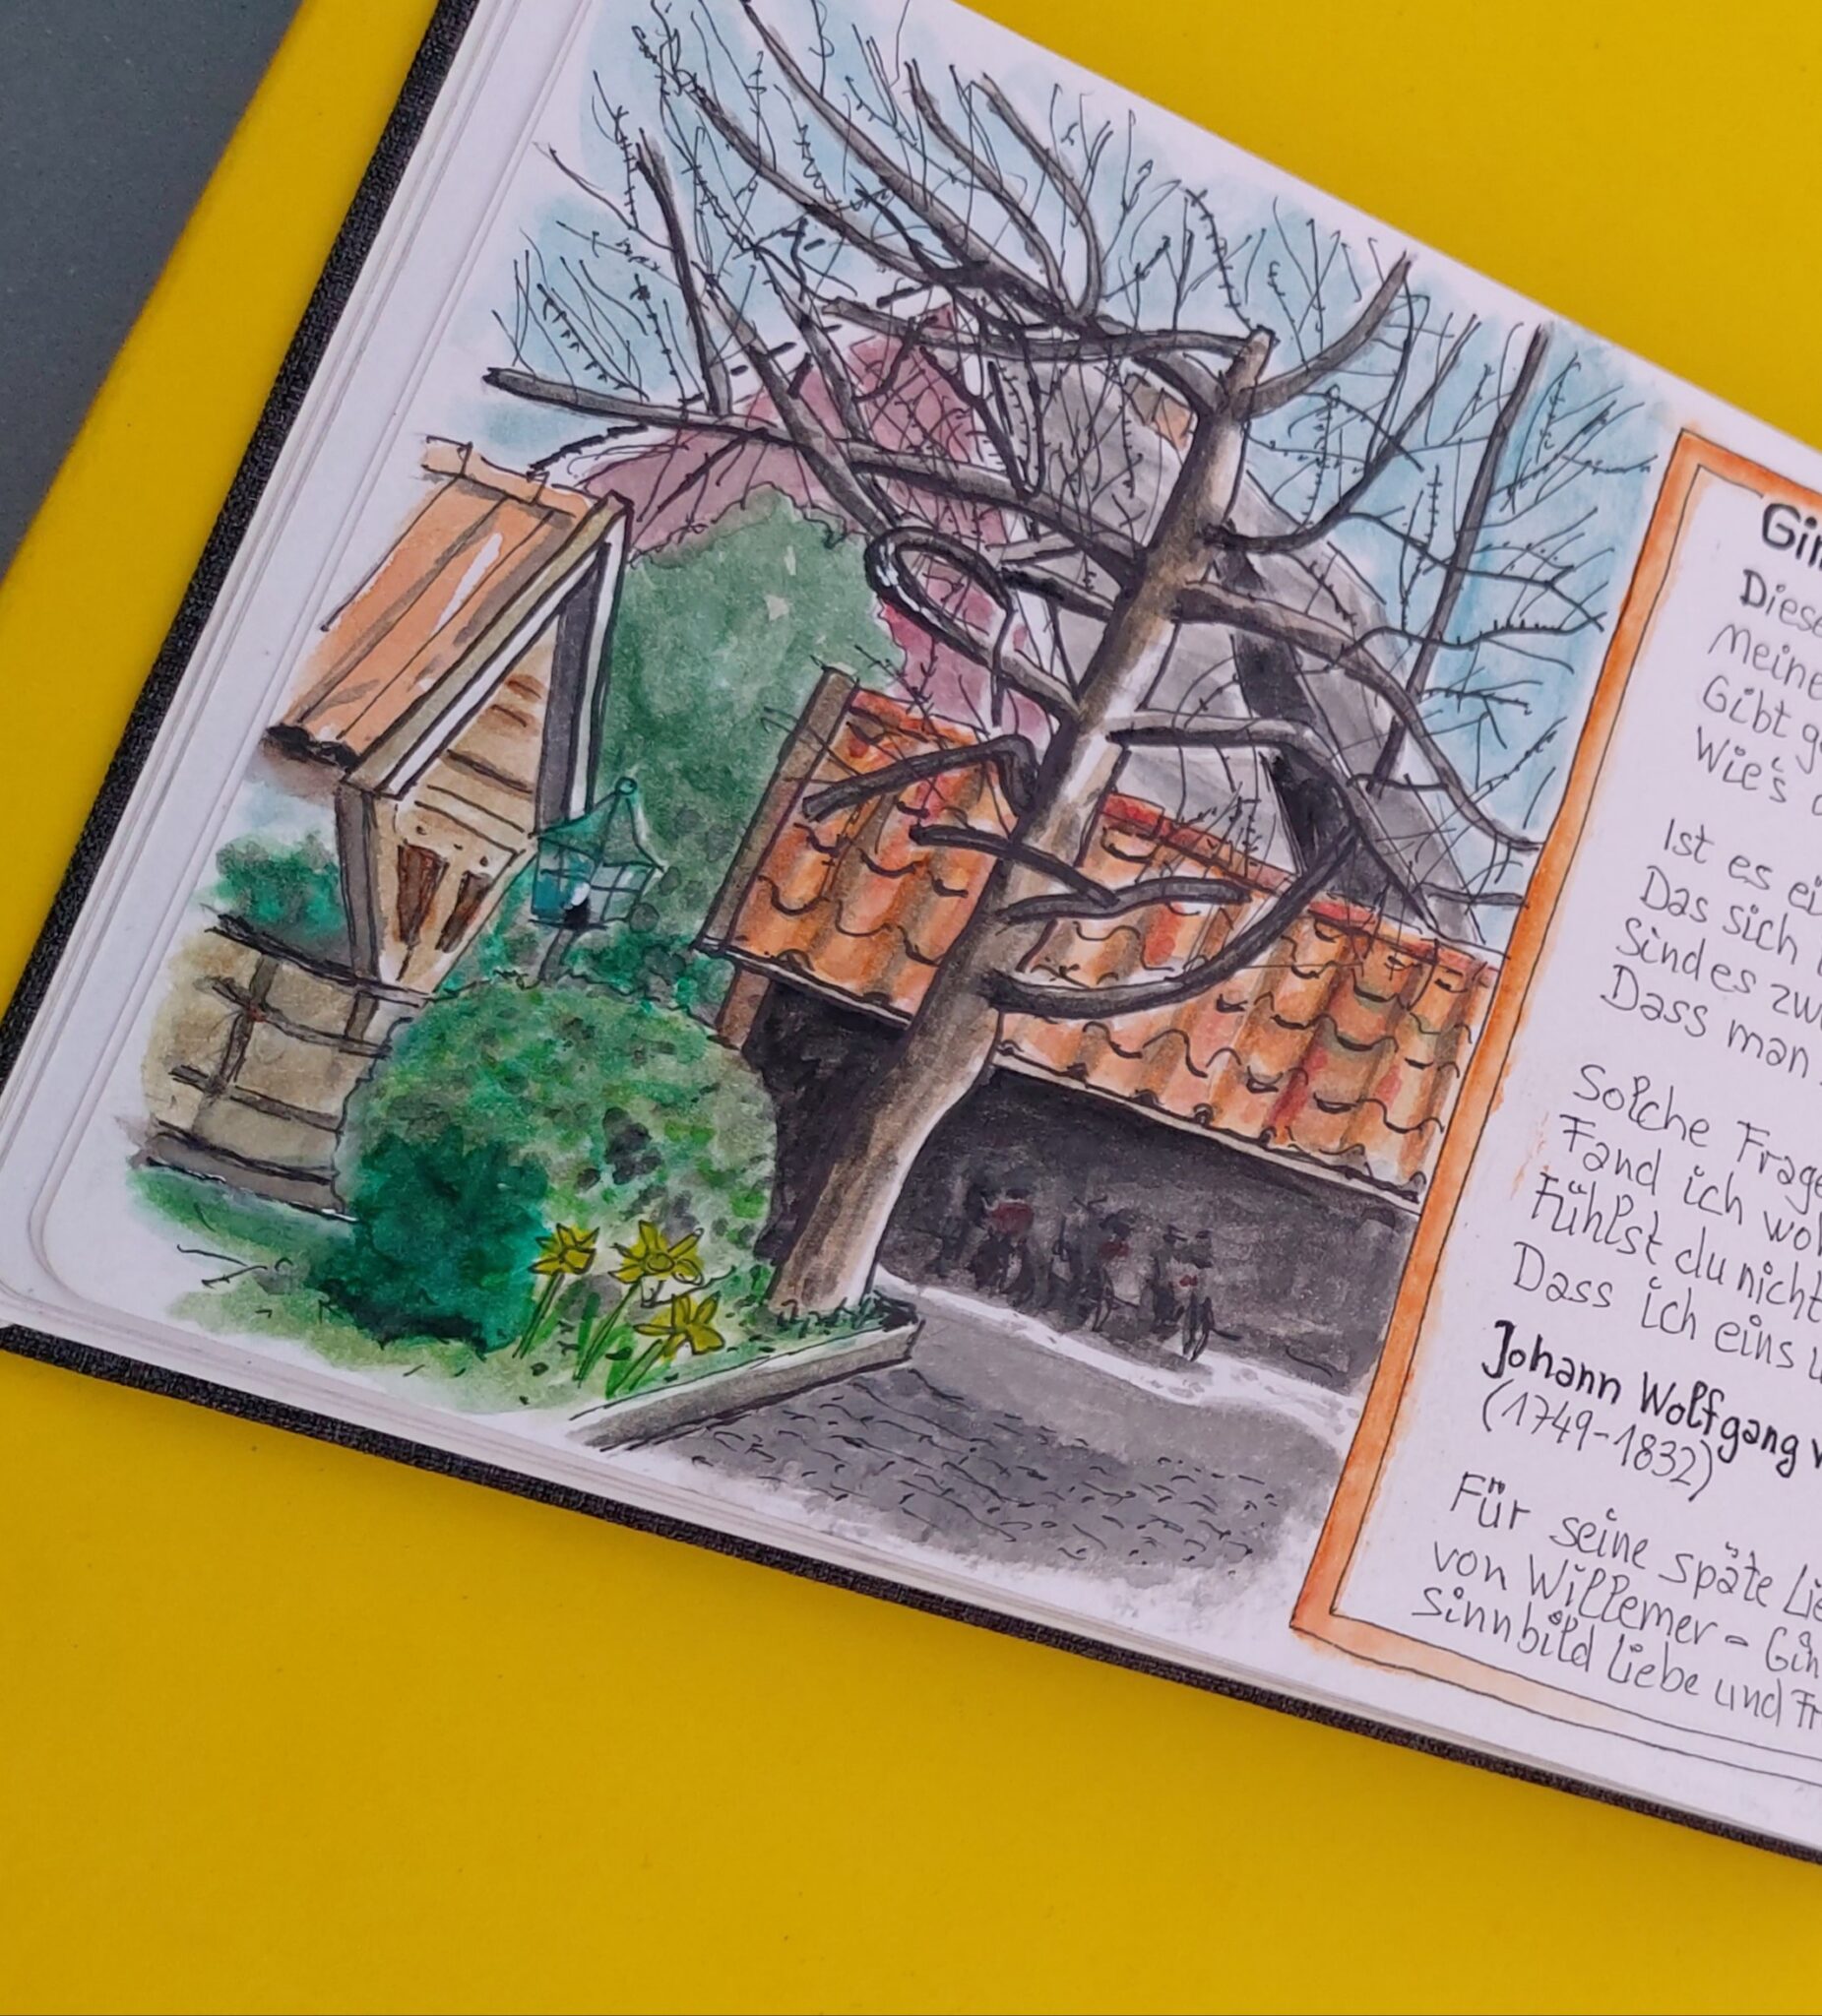 Gin
Diese
Meine
Gibt g
Wie's d
Ist es ei
Das sich
Sind es zw
Dass man
Solche Frage
Fand ich wo
Fühlst du nicht
Dass ich eins u
Johann Wolfgang v
(1749-1832)
Für seine späte Lie
von Willemer - Gin
Sinnbild Liebe und Fr